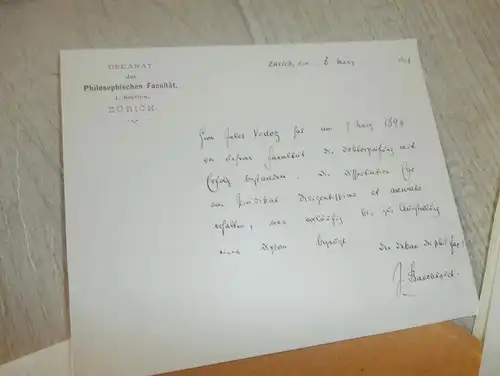 DEKANAT
der
Philosophischen Facultät,
I. Section,
ZÜRICH.
Zürich, den 8 März
Herr Jules Vodoz hat am 7 März 1894
an unserer Facultät die Doktorprüfung mit
Erfolg bestanden. Die Dissertation
das Prädikat Diligentissime et
erhalten, was vorläufig bis zur Ausstellung
eines Diploms bezeugt
Der Dekan der phil. Fac. I
J. Baechtold.